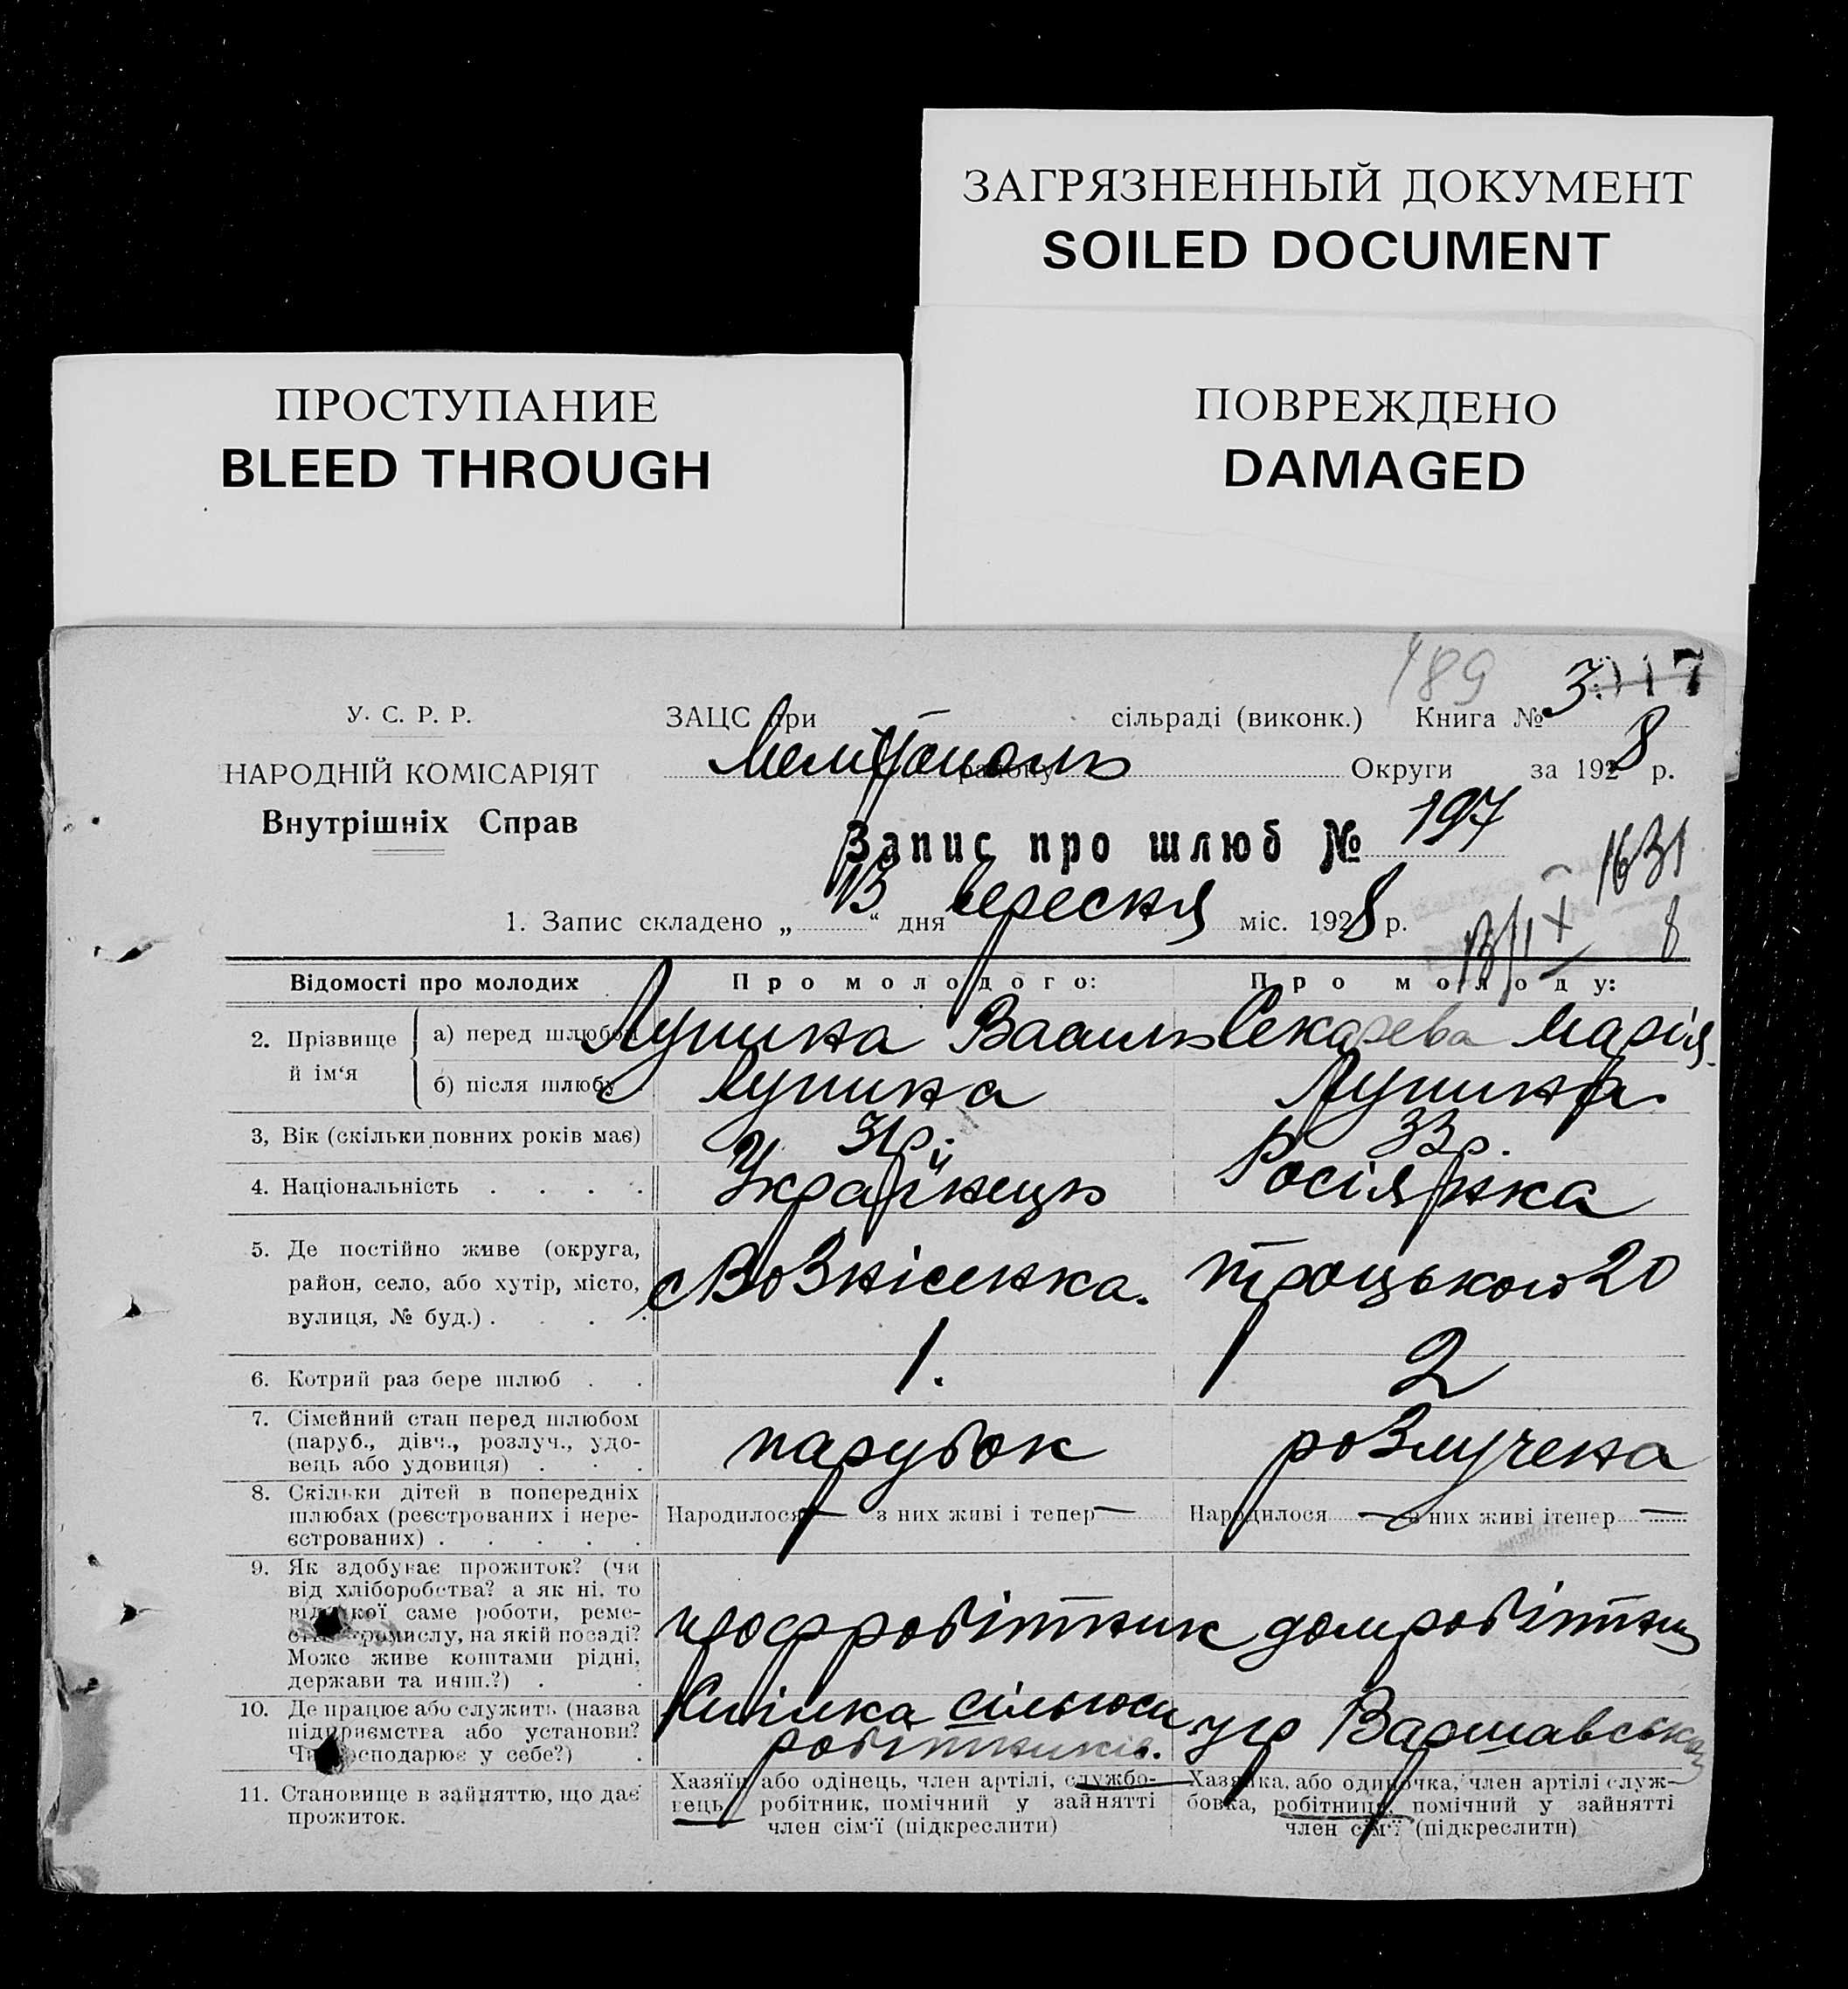 ЗАГРЯЗНЕННЫЙ ДОКУМЕНТ
SOILED DOCUMENT
ПРОСТУПАНИЕ
BLEED THROUGH
ПОВРЕЖДЕНО
DAMAGED
189
У. С. Р. Р.
НАРОДНІЙ КОМІСАРІЯТ
Внутрішніх Справ
ЗАЦС при — сільраді (виконк.) Книга № 3 117
Мелітополь району Округи за 1928 р.
Запис про шлюб № 197
1631
1. Запис складено „13“ дня вересня міс. 1928 р.
13/IX 8
Відомості про молодих Про молодого: Про молоду:
2. Прізвище й ім‘я
а) перед шлюбом Лупина Василь Секарева Марія
б) після шлюбу Лупина Лупина.
3, Вік (скільки повних років має) 31 р. 33 р.
4. Національність . . . . Українець Росіянка
5. Де постійно живе (округа,
район, село, або хутір, місто, с Вознісенка. Троцького 20
вулиця, № буд.) . . . .
6. Котрий раз бере шлюб . . 1. 2
7. Сімейний стан перед шлюбом
(паруб., дівч., розлуч., удо- парубок розлучена
вець або удовиця) . . .
8. Скільки дітей в попередніх
шлюбах (реєстрованих і нере- Народилося — з них живі і тепер — Народилося — з них живі ітепер —
єстрованих) . . . . .
9. Як здобуває прожиток? (чи
від хліборобства? а як ні, то
від якої саме роботи, реме-
промислу, на якій посаді? профробітник домробітниц
Може живе коштами рідні,
держави та инш.?) . .
10. Де працює або служить (назва Спілка сільгосп
підприємства або установи? робітників. у гр Варшавської
Чи господарює у себе?) .
11. Становище в зайняттю, що дає
прожиток.
Хазяїн або одінець, член артілі, службо-
вець, робітник, помічний у зайнятті
член сім‘ї (підкреслити)
Хазяйка, або одиночка, член артілі служ-
бовка, робітниця, помічний у зайнятті
член сім‘ї (підкреслити)